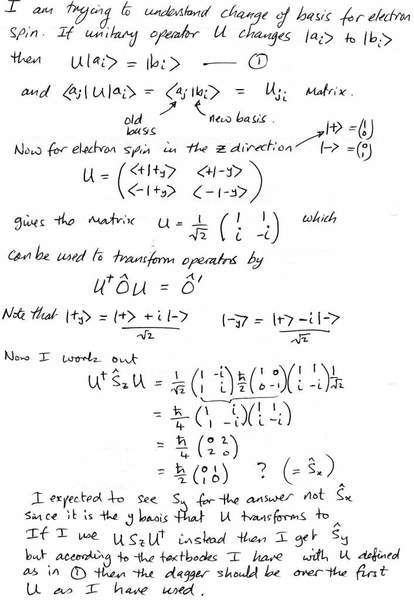 I am trying to understand change of basis for electron
spin. If unitary operator U changes |ai> to |bi>
then U|ai> = |bi> —— ①
and <aj|U|ai> = <aj|bi> = Uji matrix.
old basis
new basis.
Now for electron spin in the z direction |+> = (1 0) |-> = (0 1)
U = ( <+|+y> <+|-y> <-|+y> <-|-y> )
gives the matrix U = 1/√2 ( 1 1 i -i ) which
can be used to transform operators by
U† Ô U = Ô'
Note that |+y> = |+> + i|-> / √2 |-y> = |+> - i|-> / √2
Now I work out
U† Ŝz U = 1/√2 ( 1 -i 1 i ) ħ/2 ( 1 0 0 -1 ) ( 1 1 i -i ) 1/√2
= ħ/4 ( 1 i 1 -i ) ( 1 1 i -i )
= ħ/4 ( 0 2 2 0 )
= ħ/2 ( 0 1 1 0 ) ? (= Ŝx)
I expected to see Sy for the answer not Ŝx
since it is the y basis that U transforms to
If I use U Sz U† instead then I get Ŝy
but according to the textbooks I have with U defined
as in ① then the dagger should be over the first
U as I have used.